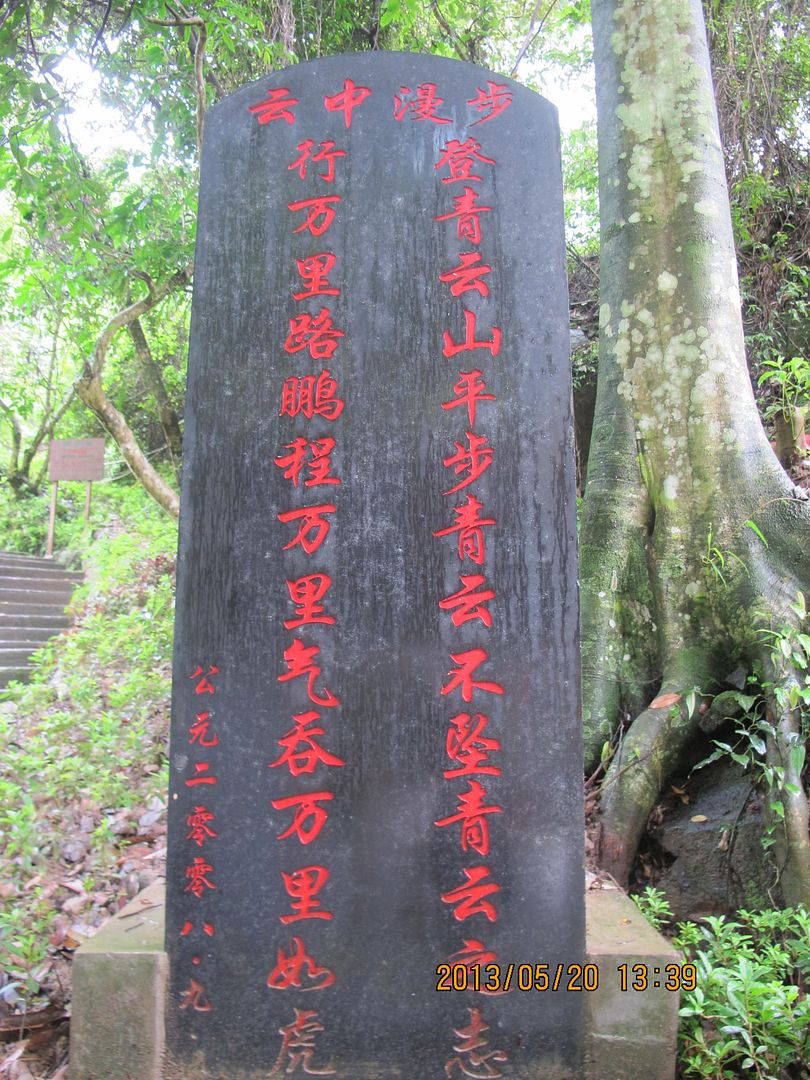 步漫中云
登青云山平步青云不坠青云之志
行万里路鹏程万里气吞万里如虎
公元二零零八·九·
2013/05/20 13:39